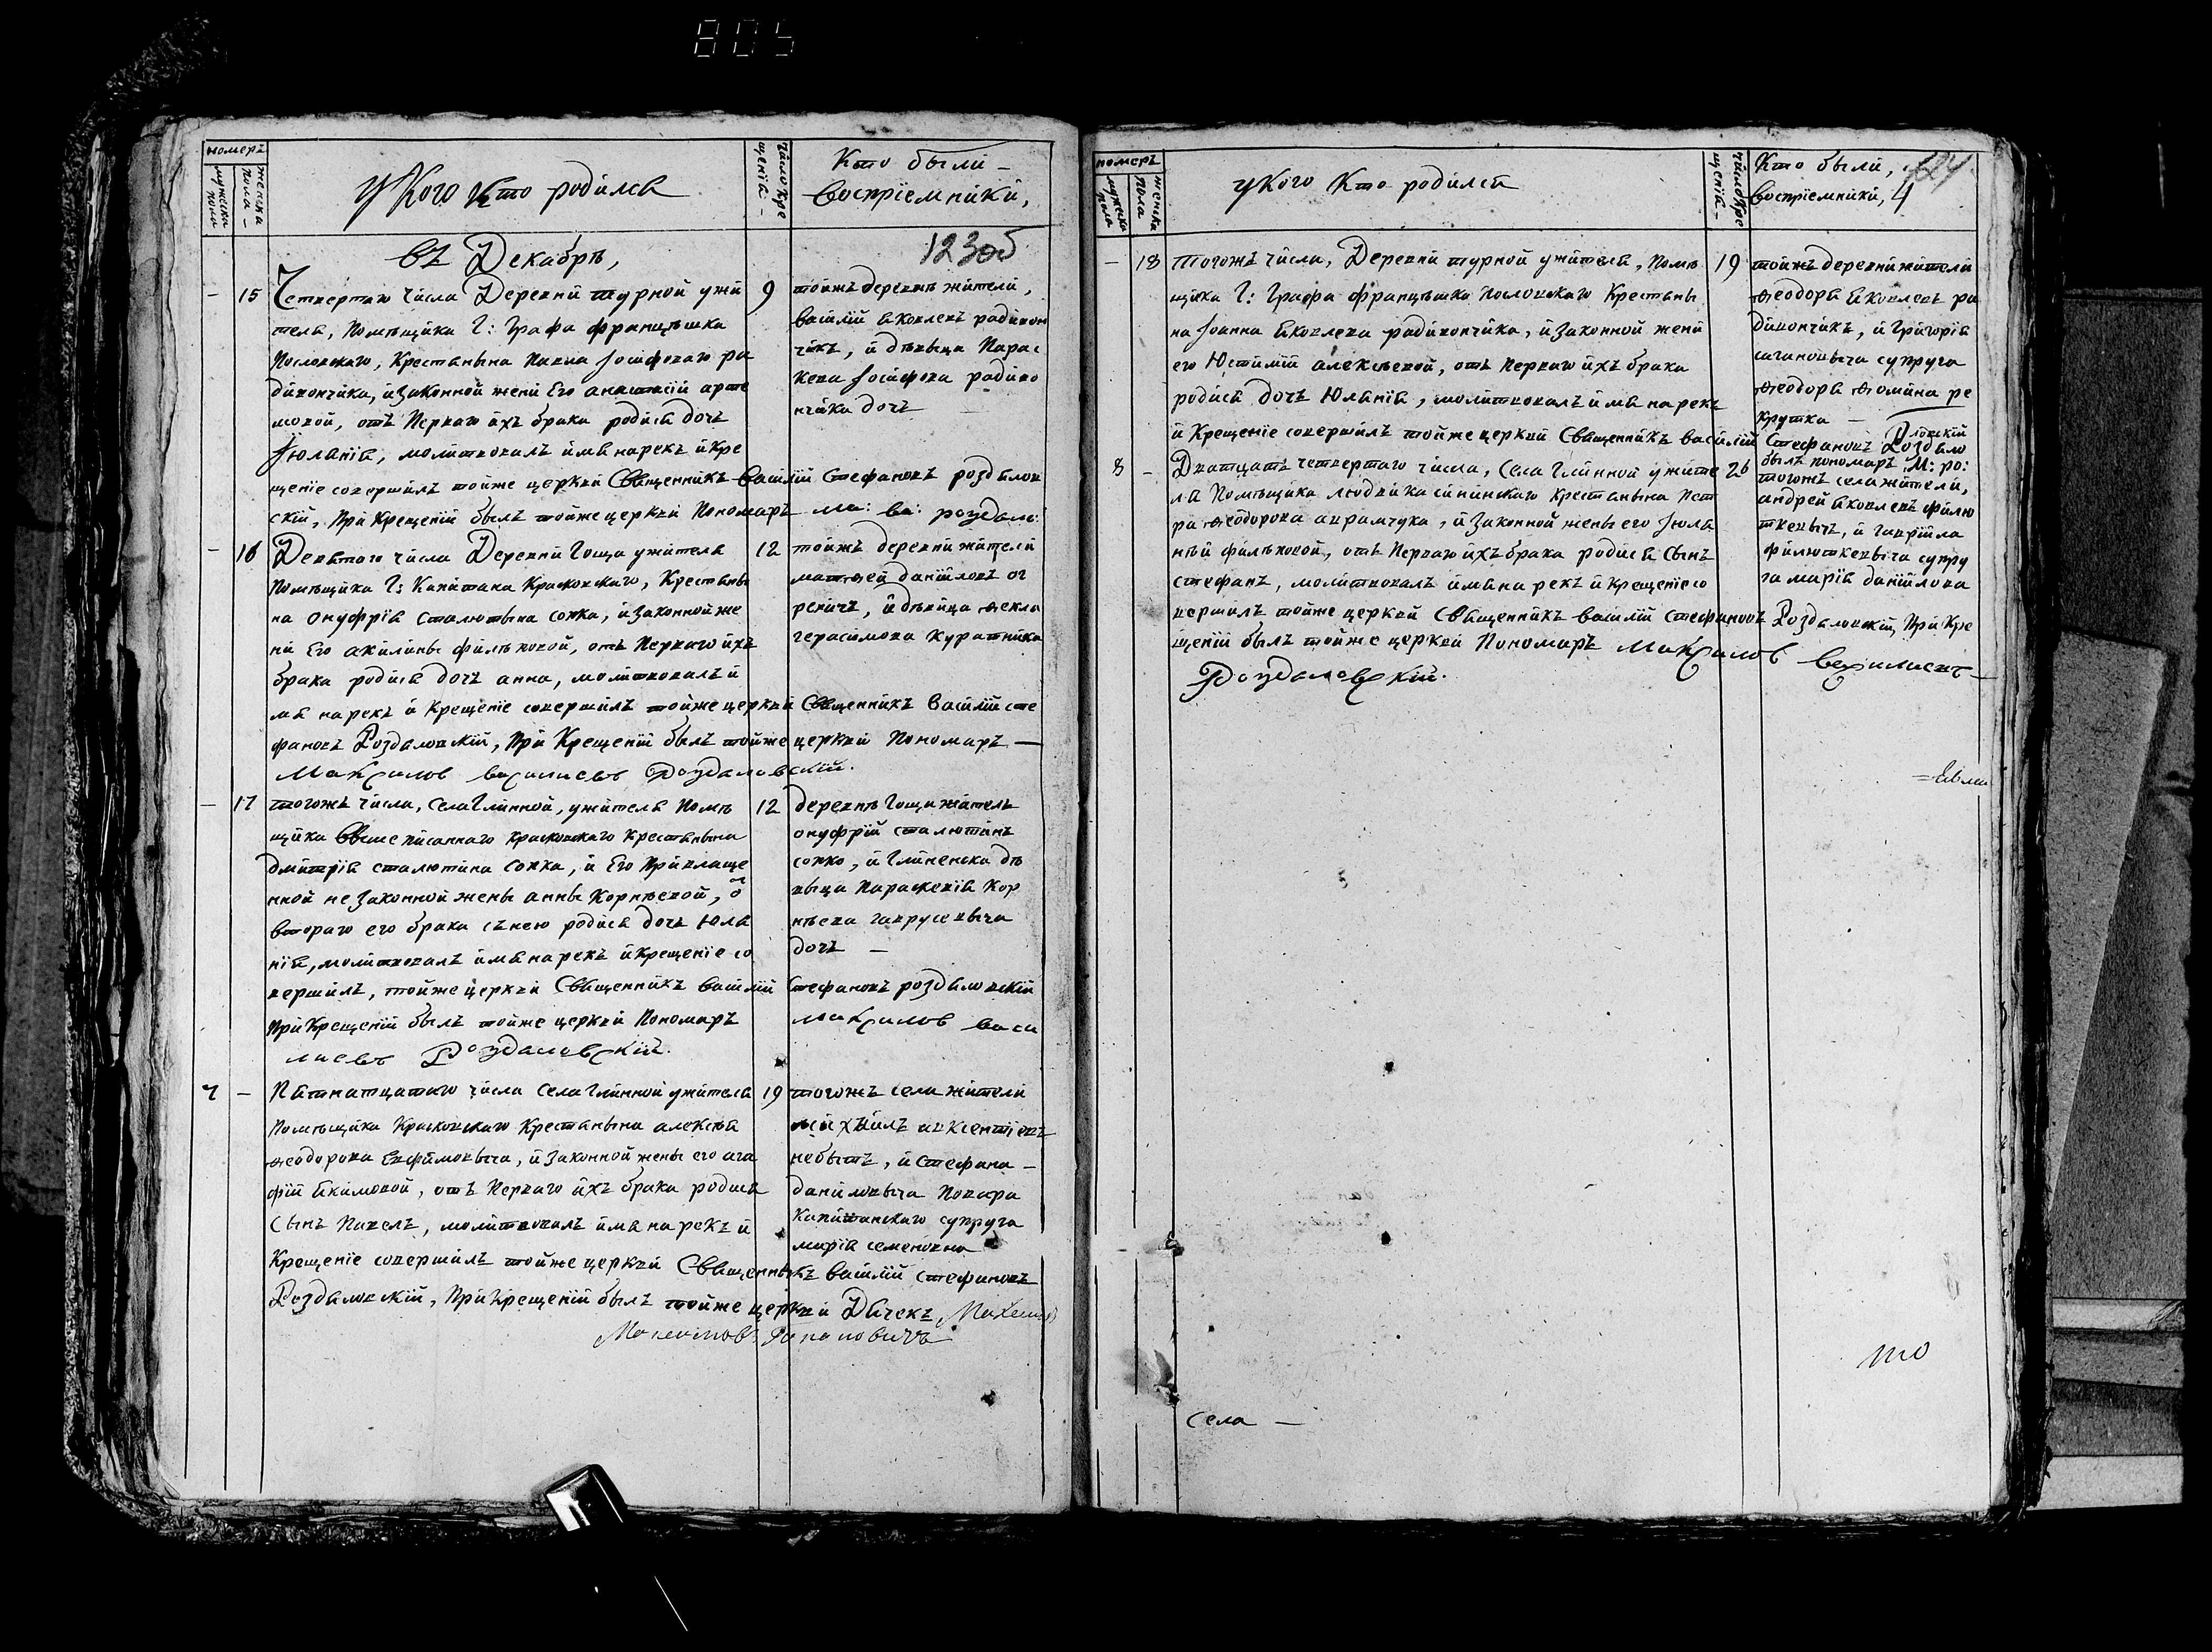 805
номеръ
мужеска пола
женска пола
У Кого Кто родился
число Кре
щенія
Кто были
воспріемники,
въ Декабрѣ,
123об
15
Четвертаго числа Деревни турной ужи
теля, Помѣщика Г: Графа францѣшка
Пословскаго, Крестянына Павла Іосифоваго ра
дивончика, и законной жени Его анастасіи арте
мовой, отъ Перваго ихъ брака родися дочь
Іюланія, молитвовалъ имя нарекъ и кре
щеніе совершилъ тойже церкви Священникъ Василій Стефановъ роздялов
скій, При Крещеніи былъ тойже церкви Пономаръ ма: ва: роздало:
9
тойжъ деревнѣ жители,
василій яковлевъ радивон
чикъ, и дѣвыца Парас
кева Іосифова радиво
нчика дочь
16
Девятого числа Деревни Гоща ужителя
Помѣщика Г: Капитана Красковскаго, Крестяны
на онуфрія сталютына сопка, и законной же
ни Его акилины филѣповой, отъ Перваго ихъ
брака родися дочь анна, молитвовалъ и
мя нарекъ и Крещеніе совершилъ тойже церкви Священникъ Василій сте
фановъ Роздаловскій, При Крещеніи былъ тойже церкви Пономаръ —
Максимов василиевъ Роздаловскій.
12
тойжъ деревни жители
матѳей даниіловъ ог
ревичъ, и дѣвица ѳекла
герасимова Куратника
17
тогожъ числа, села Глинной, ужителя Помѣ
щика Вышеписаннаго Красковскаго Крестянына
Дмитрія сталютина сопка, и Его Привлаще
нной незаконной жены анны Корнѣевой, ѿ
втораго его брака съ нею родися дочь Юла
нія, молитвовалъ имя нарекъ и крещеніе со
вершилъ, тойже церкви Священникъ василій Стефановъ роздяловскій
При Крещеніи былъ тойже церкви Пономаръ Максимов васи
лиевъ Роздаловскій.
12
деревнѣ Гощи житель
онуфрій сталютинъ
сопко, и Глиненска дѣ
выца Параскевія Кор
нѣева гаврусевыча
дочь —
7
Пятнатцатаго числа села Глинной ужителя
Помѣщика Красковскаго Крестянына алексѣя
ѳеодорова Евфимовыча, и законной жены его ага
фіи Якимовой, отъ Перваго ихъ брака родися
Сынъ Павелъ, молитвовалъ имя нарекъ и
Крещеніе совершилъ тойже церкви Священныкъ василій стефановъ
Роздаловскій, При Крещеніи былъ тойже церкви Дячекъ
19
тогожъ села жители
михаилъ авксентіевъ
небытъ, и Стефана —
даниловыча Повара
Капитанскаго супруга
марія семеновна
номеръ
мужеска пола
женска пола
У Кого Кто родился
число Кре
щеній
Кто были,
воспріемники,
124
4
18
тогожъ числа, Деревни турной ужителя, Помѣ
щика Г: Графа францѣшка Пословскаго Крестяны
на Іоанна яковлева радивончика, и законной жени
его Юстиміи алексѣевой, отъ Перваго ихъ брака
родися дочь Юланія, молитвовалъ имя нарекъ
и Крещеніе совершилъ тойже церкви Священникъ василій Стефановъ Роздяло
вскій
былъ пономаръ М: ро:
19
тойжъ деревни жители
ѳеодоръ яковлевъ ра
дивончикъ, и Григорія
сагановыча супруга
ѳеодора ѳомина ре
крутка —
8
Двацать четвертаго числа, Села Глинной ужите
ля Помѣщика людвика сининскаго крестянына Пет
ра ѳеодорова аврамчука, и законной жены его Іюля
ніи филѣповой, отъ Перваго ихъ брака родися Сынъ
стефанъ, молитвовалъ имя нарекъ и Крещеніе со
вершилъ тойже церкви Священникъ василій стефановъ Роздаловскій, При Кре
щеніи былъ тойже церкви Пономаръ Максимов василиевъ
Роздаловскій.
26
тогожъ села жители,
андрей яковлевъ филю
ткевычъ, и гавріила
филюткевыча супру
га марія даниілова
Села —